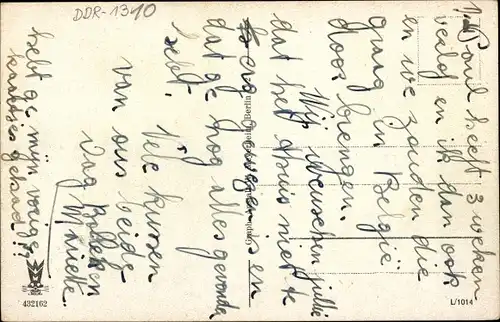 DDR-1310
1. Paul heeft 3 weken
verlof en ik dan ook
en we zouden die
graag in België
door brengen.
Wij wenschen jullie
dat het thuis niet te
erg geweest is en
dat ge nog alles gevonden
hebt.
Vele kussen
van ons beide
Dag Bolleken
Mariette
hebt ge mijn vorige
kaartjes gehad !?
432162
L/1014